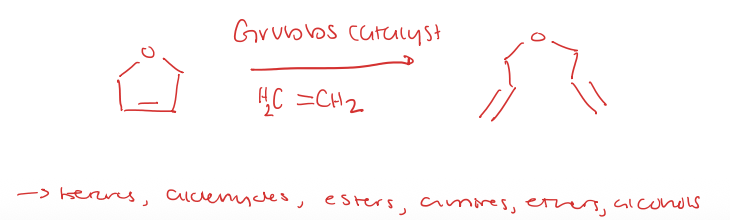 Grubbs catalyst
O
O
H2C =CH2
→ ketones, aldehydes, esters, amines, ethers, alcohols